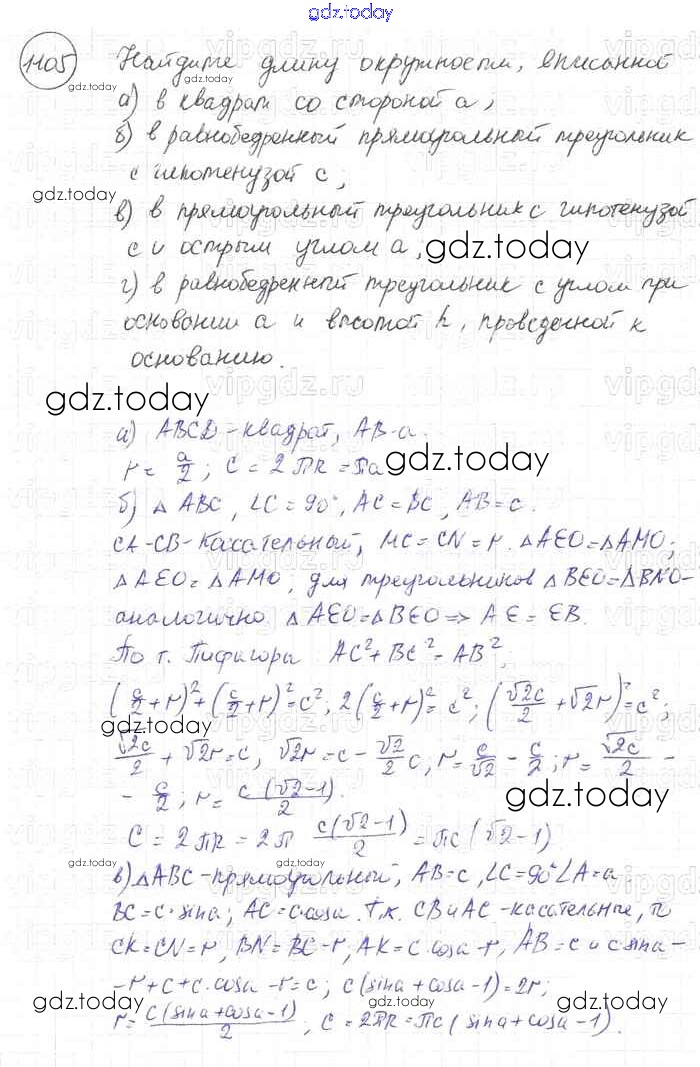 gdz.today
1105 Найдите длину окружности, вписанной
а) в квадрат со стороной a;
б) в равнобедренный прямоугольный треугольник
с гипотенузой c;
gdz.today
в) в прямоугольный треугольник с гипотенузой
c и острым углом a,
gdz.today
г) в равнобедренный треугольник с углом при
основании a и высотой h, проведенной к
основанию.
gdz.today
а) ABCD-квадрат, AB-a.
r = a/2; C = 2πR = πa
gdz.today
б) △ ABC, ∠C = 90°, AC = BC, AB = c.
CA-CB-касательный, MC = CN = r. △AEO = △AMO;
△AEO = △AMO, для треугольников △BEO = △BNO-
аналогично. △AEO = △BEO => AE = EB.
По т. Пифагора AC² + BC² = AB²,
(c/2 + r)² + (c/2 + r)² = c²; 2(c/2 + r)² = c²; (√2c/2 + √2r)² = c²;
√2c/2 + √2r = c, √2r = c - √2/2 c; r = c/√2 - c/2; r = √2c/2 -
- c/2; r = c(√2-1)/2.
gdz.today
C = 2πR = 2π c(√2-1)/2 = πc(√2-1)
gdz.today
gdz.today
в) △ABC-прямоугольный, AB = c, ∠C = 90° ∠A = a
BC = c·sina; AC = c·cosa. Т.к. CB и AC-касательные, то
CK = CN = r, BN = BC-r, AK = c·cosa-r, AB = c и c·sina-
-r + c + c·cosa - r = c; c(sina + cosa - 1) = 2r;
gdz.today
gdz.today
gdz.today
r = c(sina+cosa-1)/2, C = 2πR = πc(sina + cosa - 1).